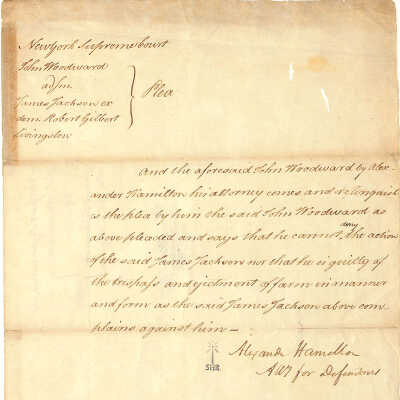 New York Supreme Court
John Woodward
adsm.
James Jackson ex
dem. Robert Gilbert
Livingston
Plea
And the aforesaid John Woodward by Alex-
ander Hamilton his attorney comes and relinquish
es the plea by him the said John Woodward as
above pleaded and says that he cannot deny the action
of the said James Jackson nor that he is guilty of
the trespass and ejectment of farm in manner
and form as the said James Jackson above com
plains against him—
Alexandr Hamilton
Att for Defendant
SHR